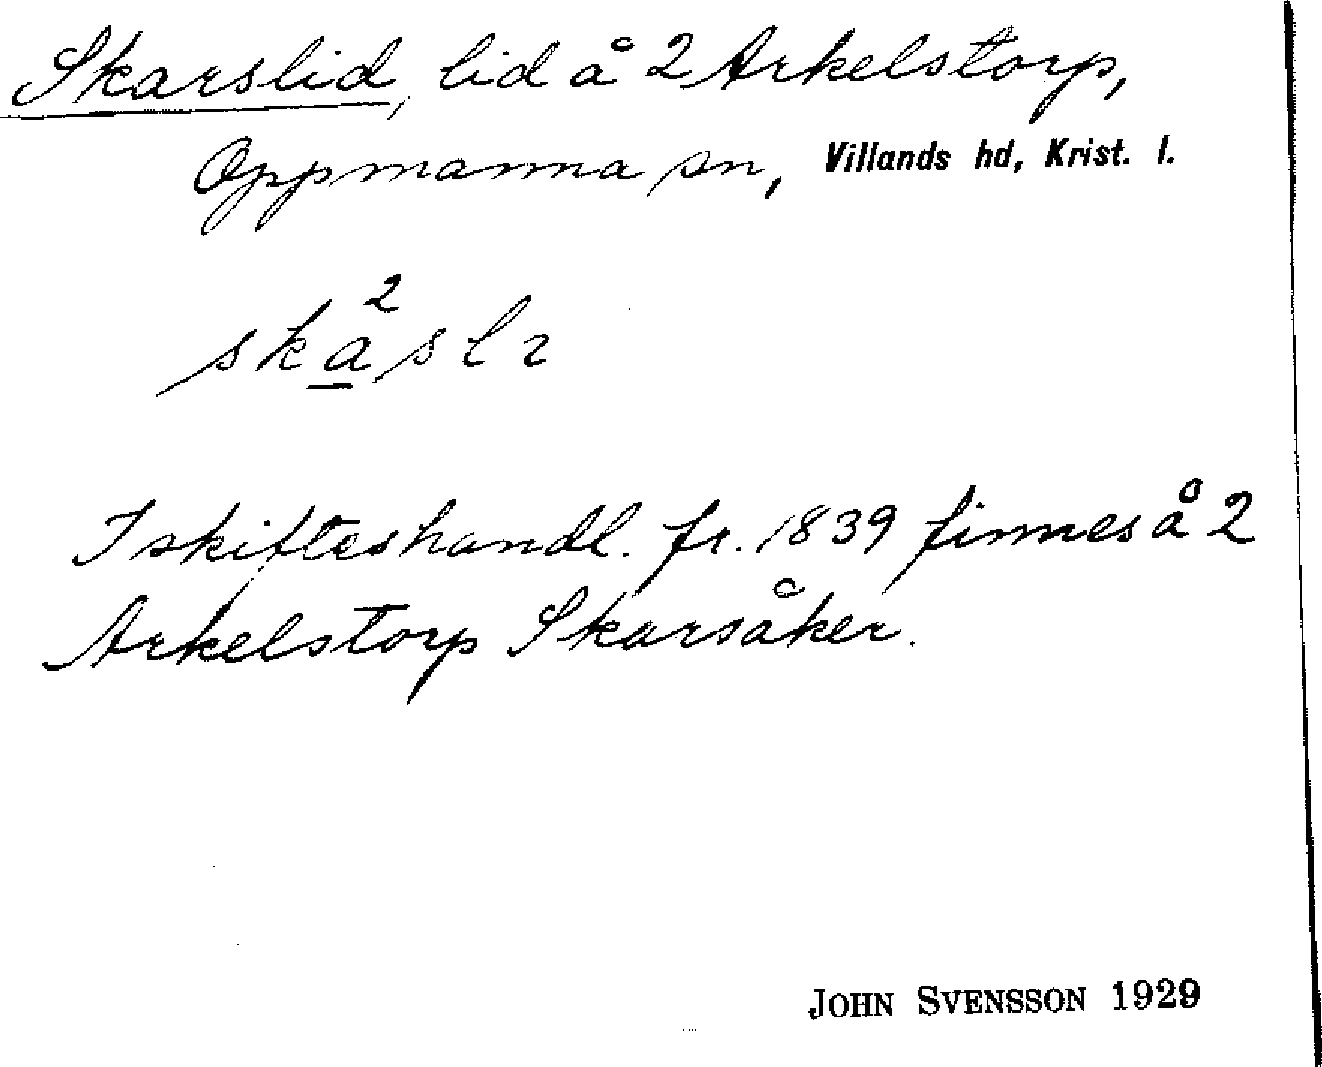 Skarslid, lid å 2 Arkelstorp,
Oppmanna sn, Villands hd, Krist. l.
ska²slɩ
I skifteshandl. fr. 1839 finnes å 2
Arkelstorp Skarsåker.
JOHN SVENSSON 1929